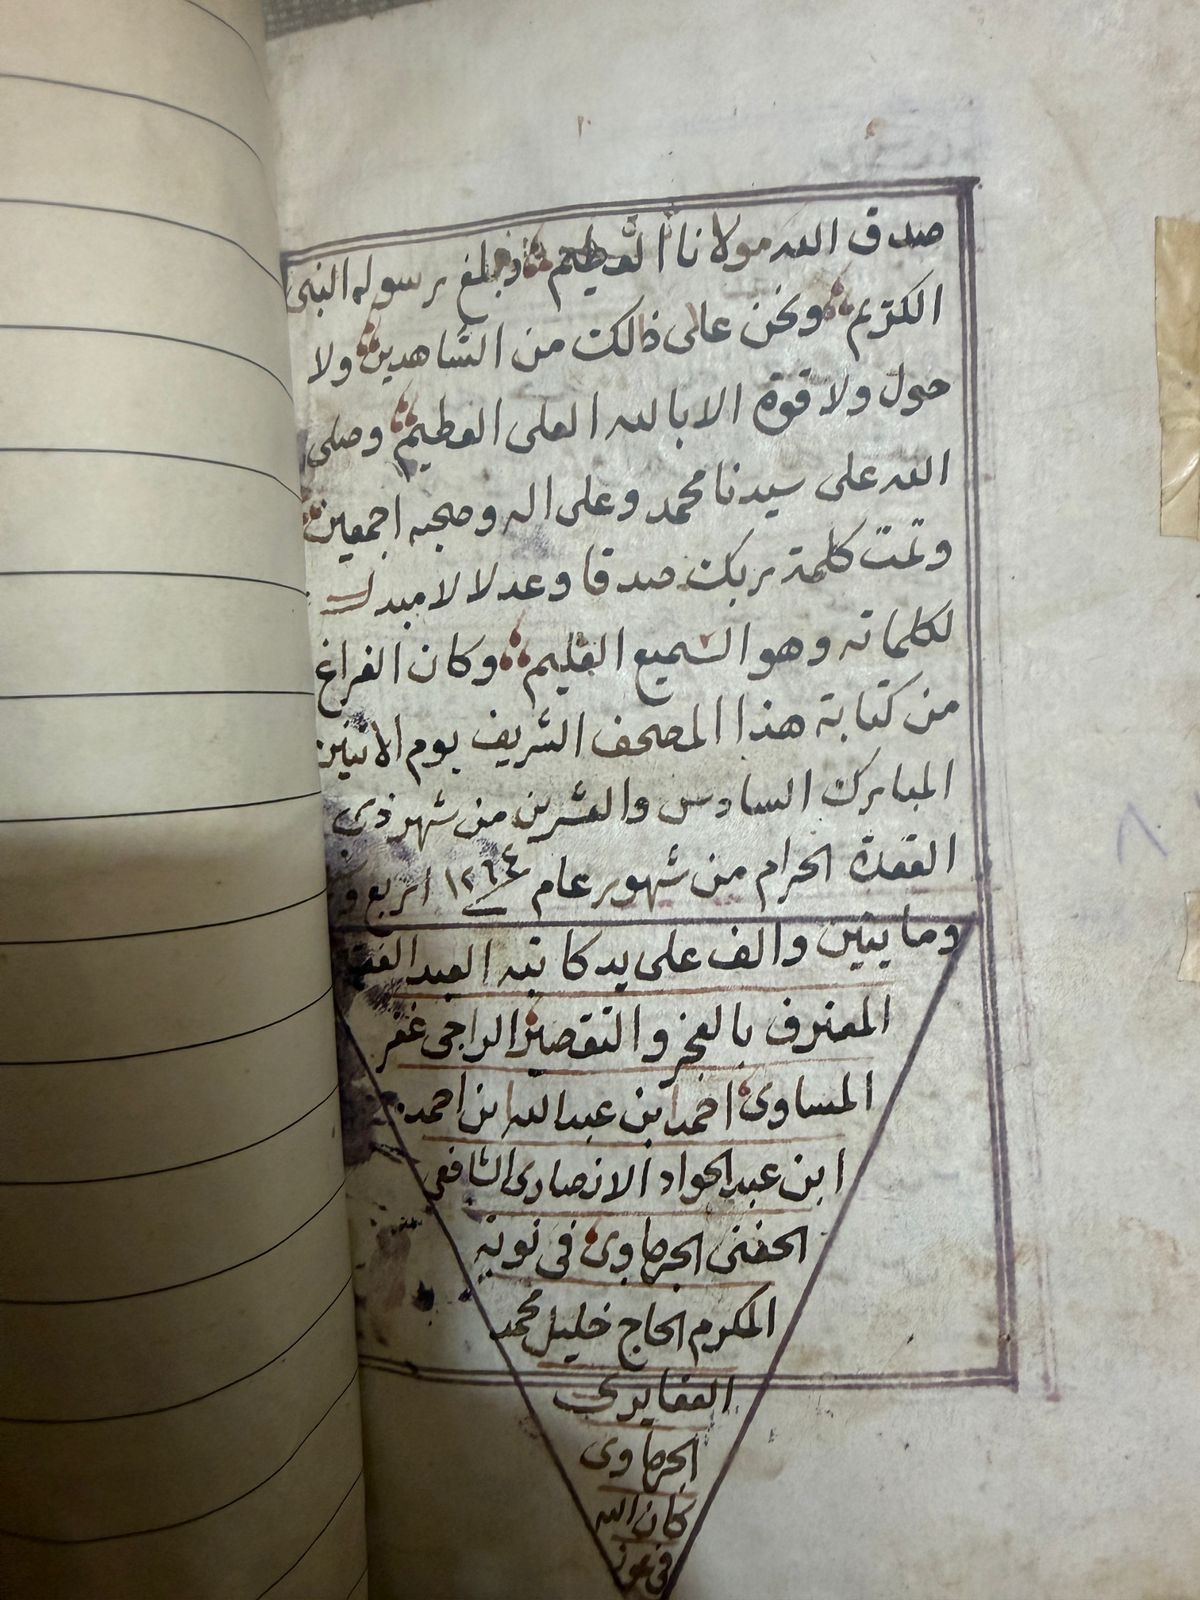 صدق الله مولانا العظيم وبلغ رسوله النبى
الكريم ونحن على ذالك من الشاهدين ولا
حول ولا قوة الا بالله العلى العظيم وصلى
الله على سيدنا محمد وعلى اله وصحبه اجمعين
وتمت كلمة ربك صدقا وعدلا لا مبدل
لكلماته وهو السميع العليم وكان الفراغ
من كتابة هذا المصحف الشريف يوم الاثنين
المبارك السادس والعشرين من شهر ذى
القعدة الحرام من شهور عام ١٢٦٤ اربع و
ومايتين والف على يد كاتبه العبد الفقير
المعترف بالعجز والتقصير الراجى غفر
المساوى احمد ابن عبدالله ابن احمد
ابن عبد الجواد الانصارى الشافعى
الحفنى الجرجاوى فى نوبة
المكرم الحاج خليل محمد
الجرجاوى
كان الله
فى عونه